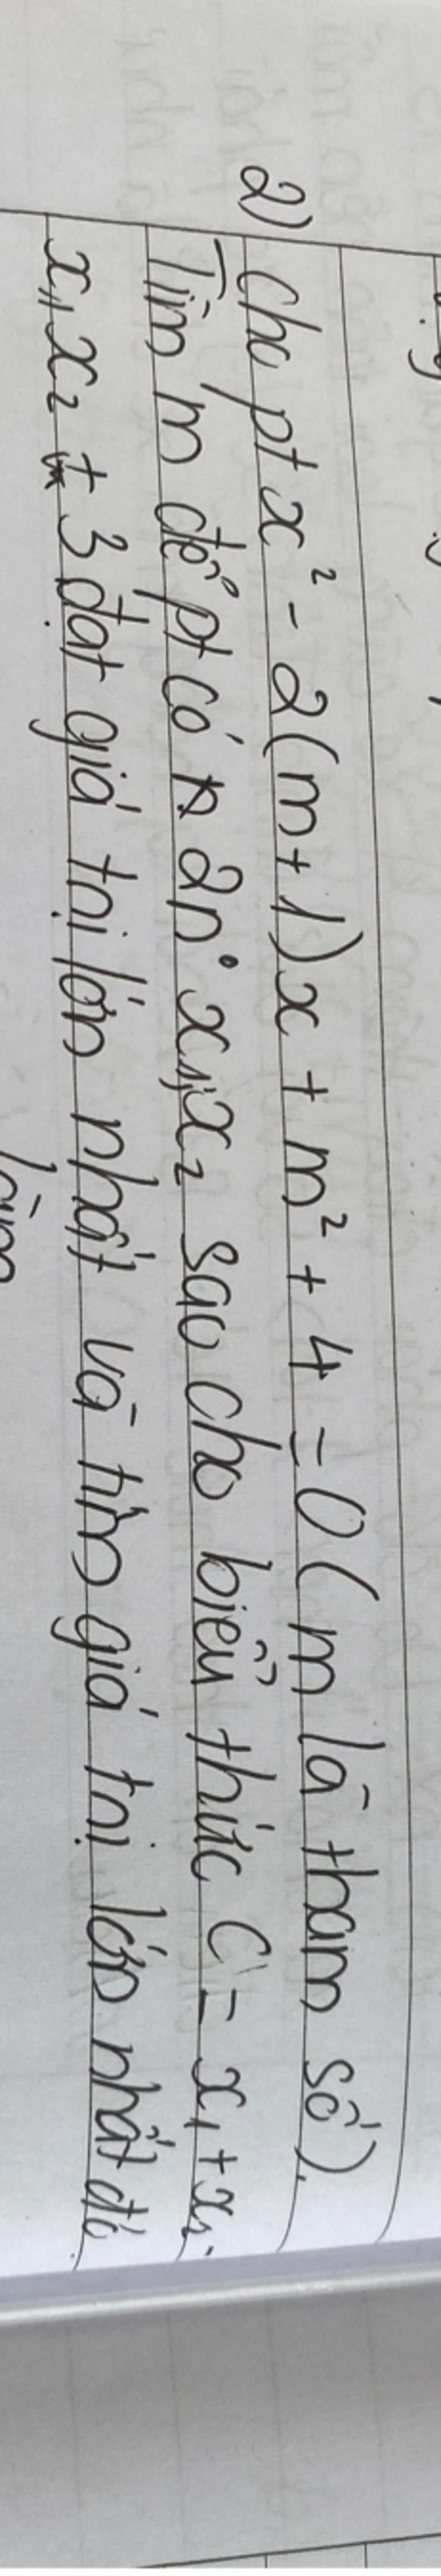 2) Cho pt x² - 2(m+1)x + m² + 4 = 0 (m là tham số).
Tìm m để pt có 2n° x₁, x₂ sao cho biểu thức C = x₁ + x₂ -
x₁, x₂ + 3 đạt giá trị lớn nhất và tìm giá trị lớn nhất đó.